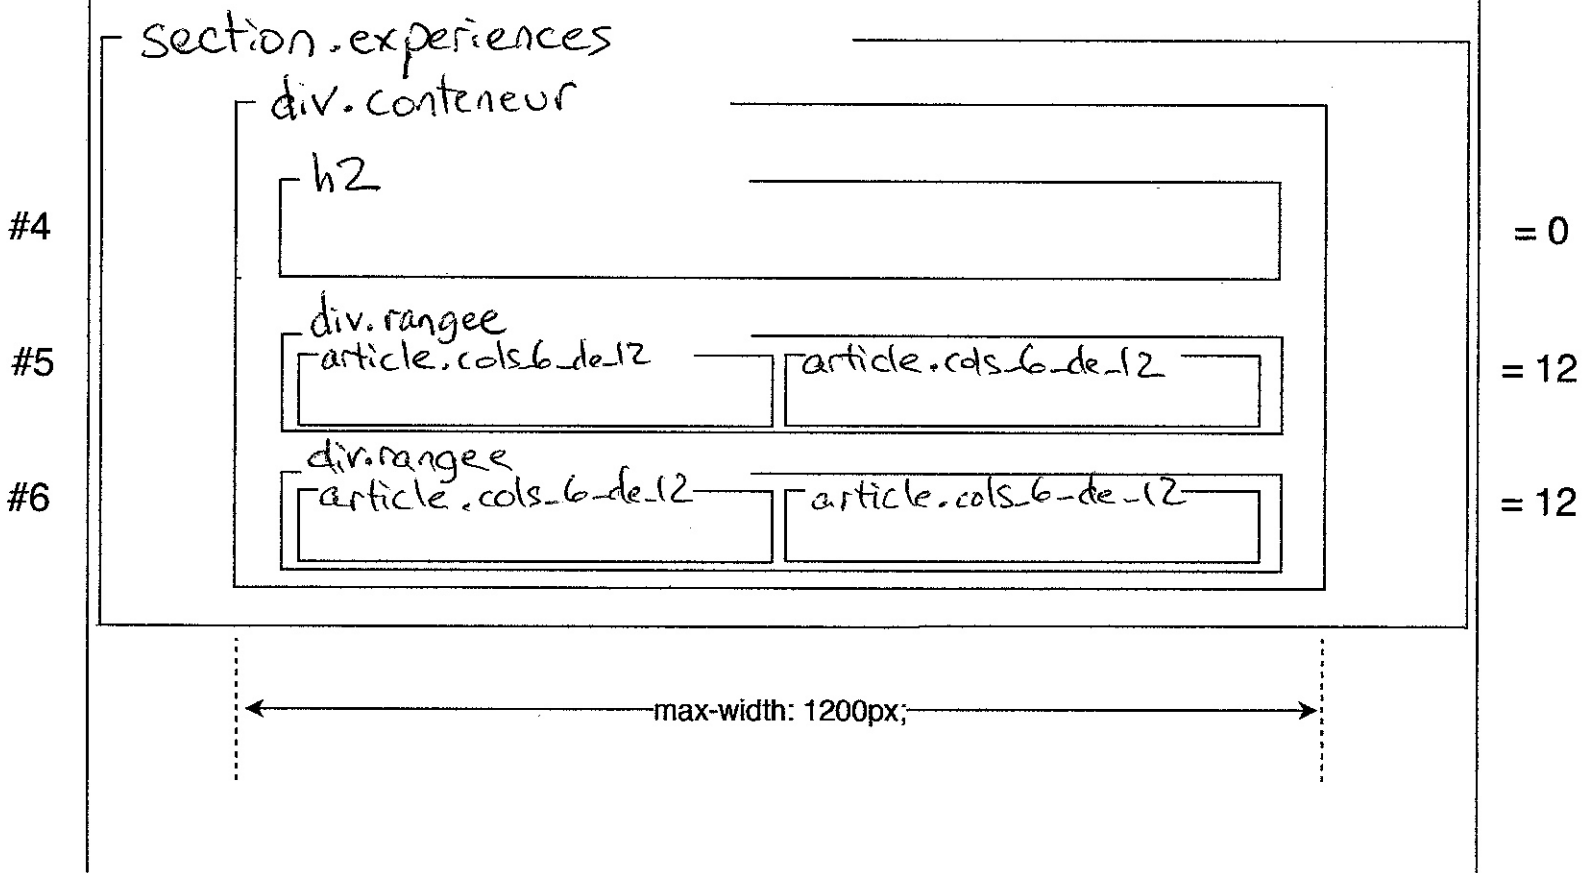 section.experiences
div.conteneur
h2
#4 = 0
div.rangee
#5 article.cols_6_de_12 article.cols_6_de_12 = 12
div.rangee
#6 article.cols_6_de_12 article.cols_6_de_12 = 12
max-width: 1200px;